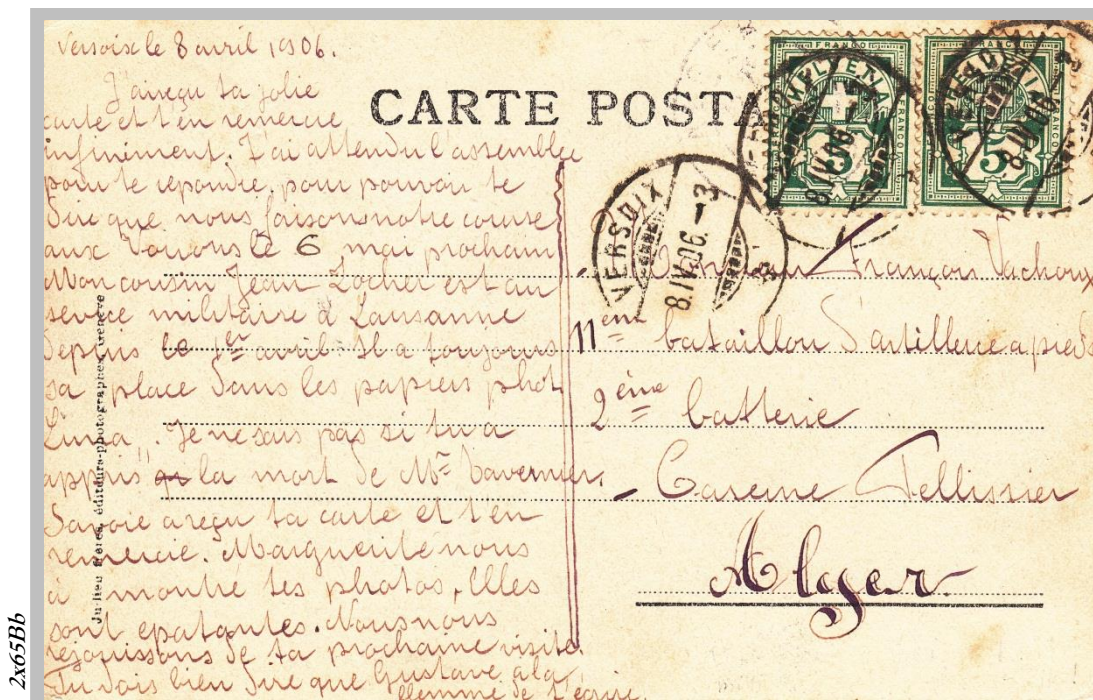 Versoix le 8 avril 1906.
J'ai reçu ta jolie
carte et t'en remercie
infiniment. J'ai attendu l'assemblée
pour te repondre, pour pouvoir te
dire que nous faisons notre course
aux Voirons le 6 mai prochain
Mon cousin Jean Locher est au
service militaire à Lausanne
depuis le 1er avril. Il a toujours
sa place dans les papiers phot
Luna. Je ne sais pas si tu a
appris la mort de Mr Tavernier.
Savoie a reçu ta carte et t'en
remercie. Marguerite nous
a montré tes photos, Elles
sont epatantes. Nous nous
rejouissons de ta prochaine visite
Tu dois bien dire que Gustave a la
flemme de t'écrire.
CARTE POSTA
FRANCO HELVETIA 5
FRANCO HELVETIA 5
VERSOIX
8.IV.06.-3
Monsieur François Vachoux
11ème bataillon d'artillerie a pieds
2ème batterie
Caserne Pellissier
Alger
Jullien frères, éditeurs-photographes, Genève
2x65Bb